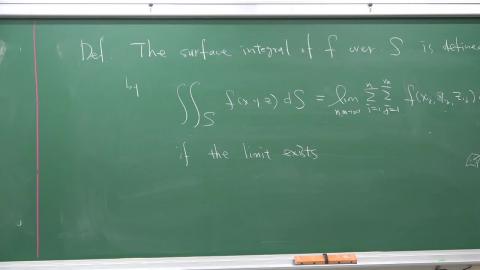 Def. The surface integral of f over S is define
by ∬_S f(x,y,z) dS = lim_{n,m→∞} Σ_{i=1}^{n} Σ_{j=1}^{m} f(
if the limit exists